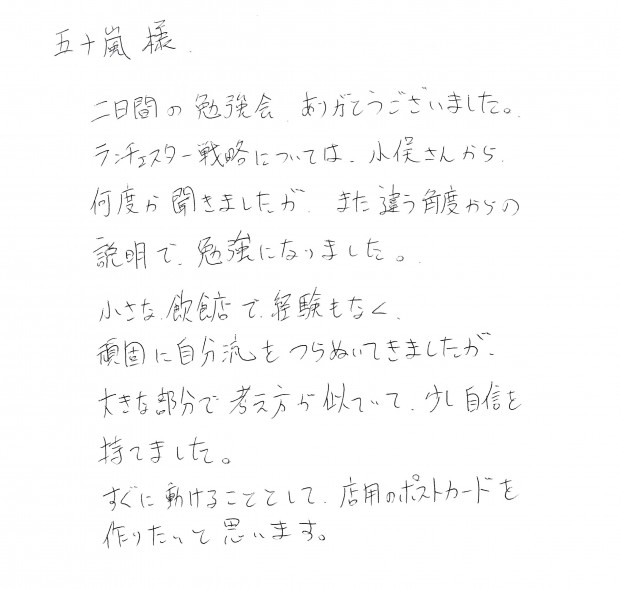 五十嵐 様.
二日間の勉強会、ありがとうございました。
ランチェスター戦略については、小俣さんから、
何度か聞きましたが、また違う角度からの
説明で、勉強になりました。
小さな飲食店で、経験もなく、
頑固に自分流をつらぬいてきましたが、
大きな部分で考え方が似ていて、少し自信を
持てました。
すぐに動けることとして、店用のポストカードを
作りたいと思います。